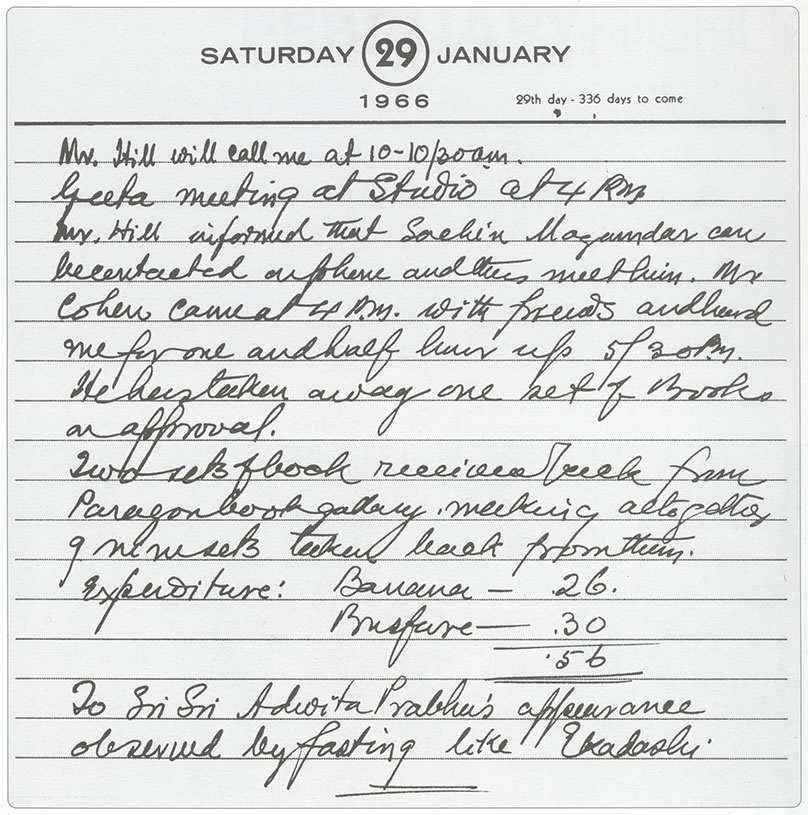 SATURDAY 29 JANUARY
1966 29th day - 336 days to come
Mr. Hill will call me at 10-10/30am.
Geeta meeting at Studio at 4 P.M.
Mr. Hill informed that Sachin Magumdar can
be contacted on phone and thus meet him. Mr
Cohen came at 4 P.M. with friends and heard
me for one and half hour up 5/30 P.M.
He has taken away one set of Books
on approval.
Two sets of book received back from
Paragon book gallary. making altogether
9 nine sets taken back from them.
Expenditure: Banana - .26.
Busfare - .30
.56
To Sri Sri Adwita Prabhu's appearance
observed by fasting like Ekadashi.